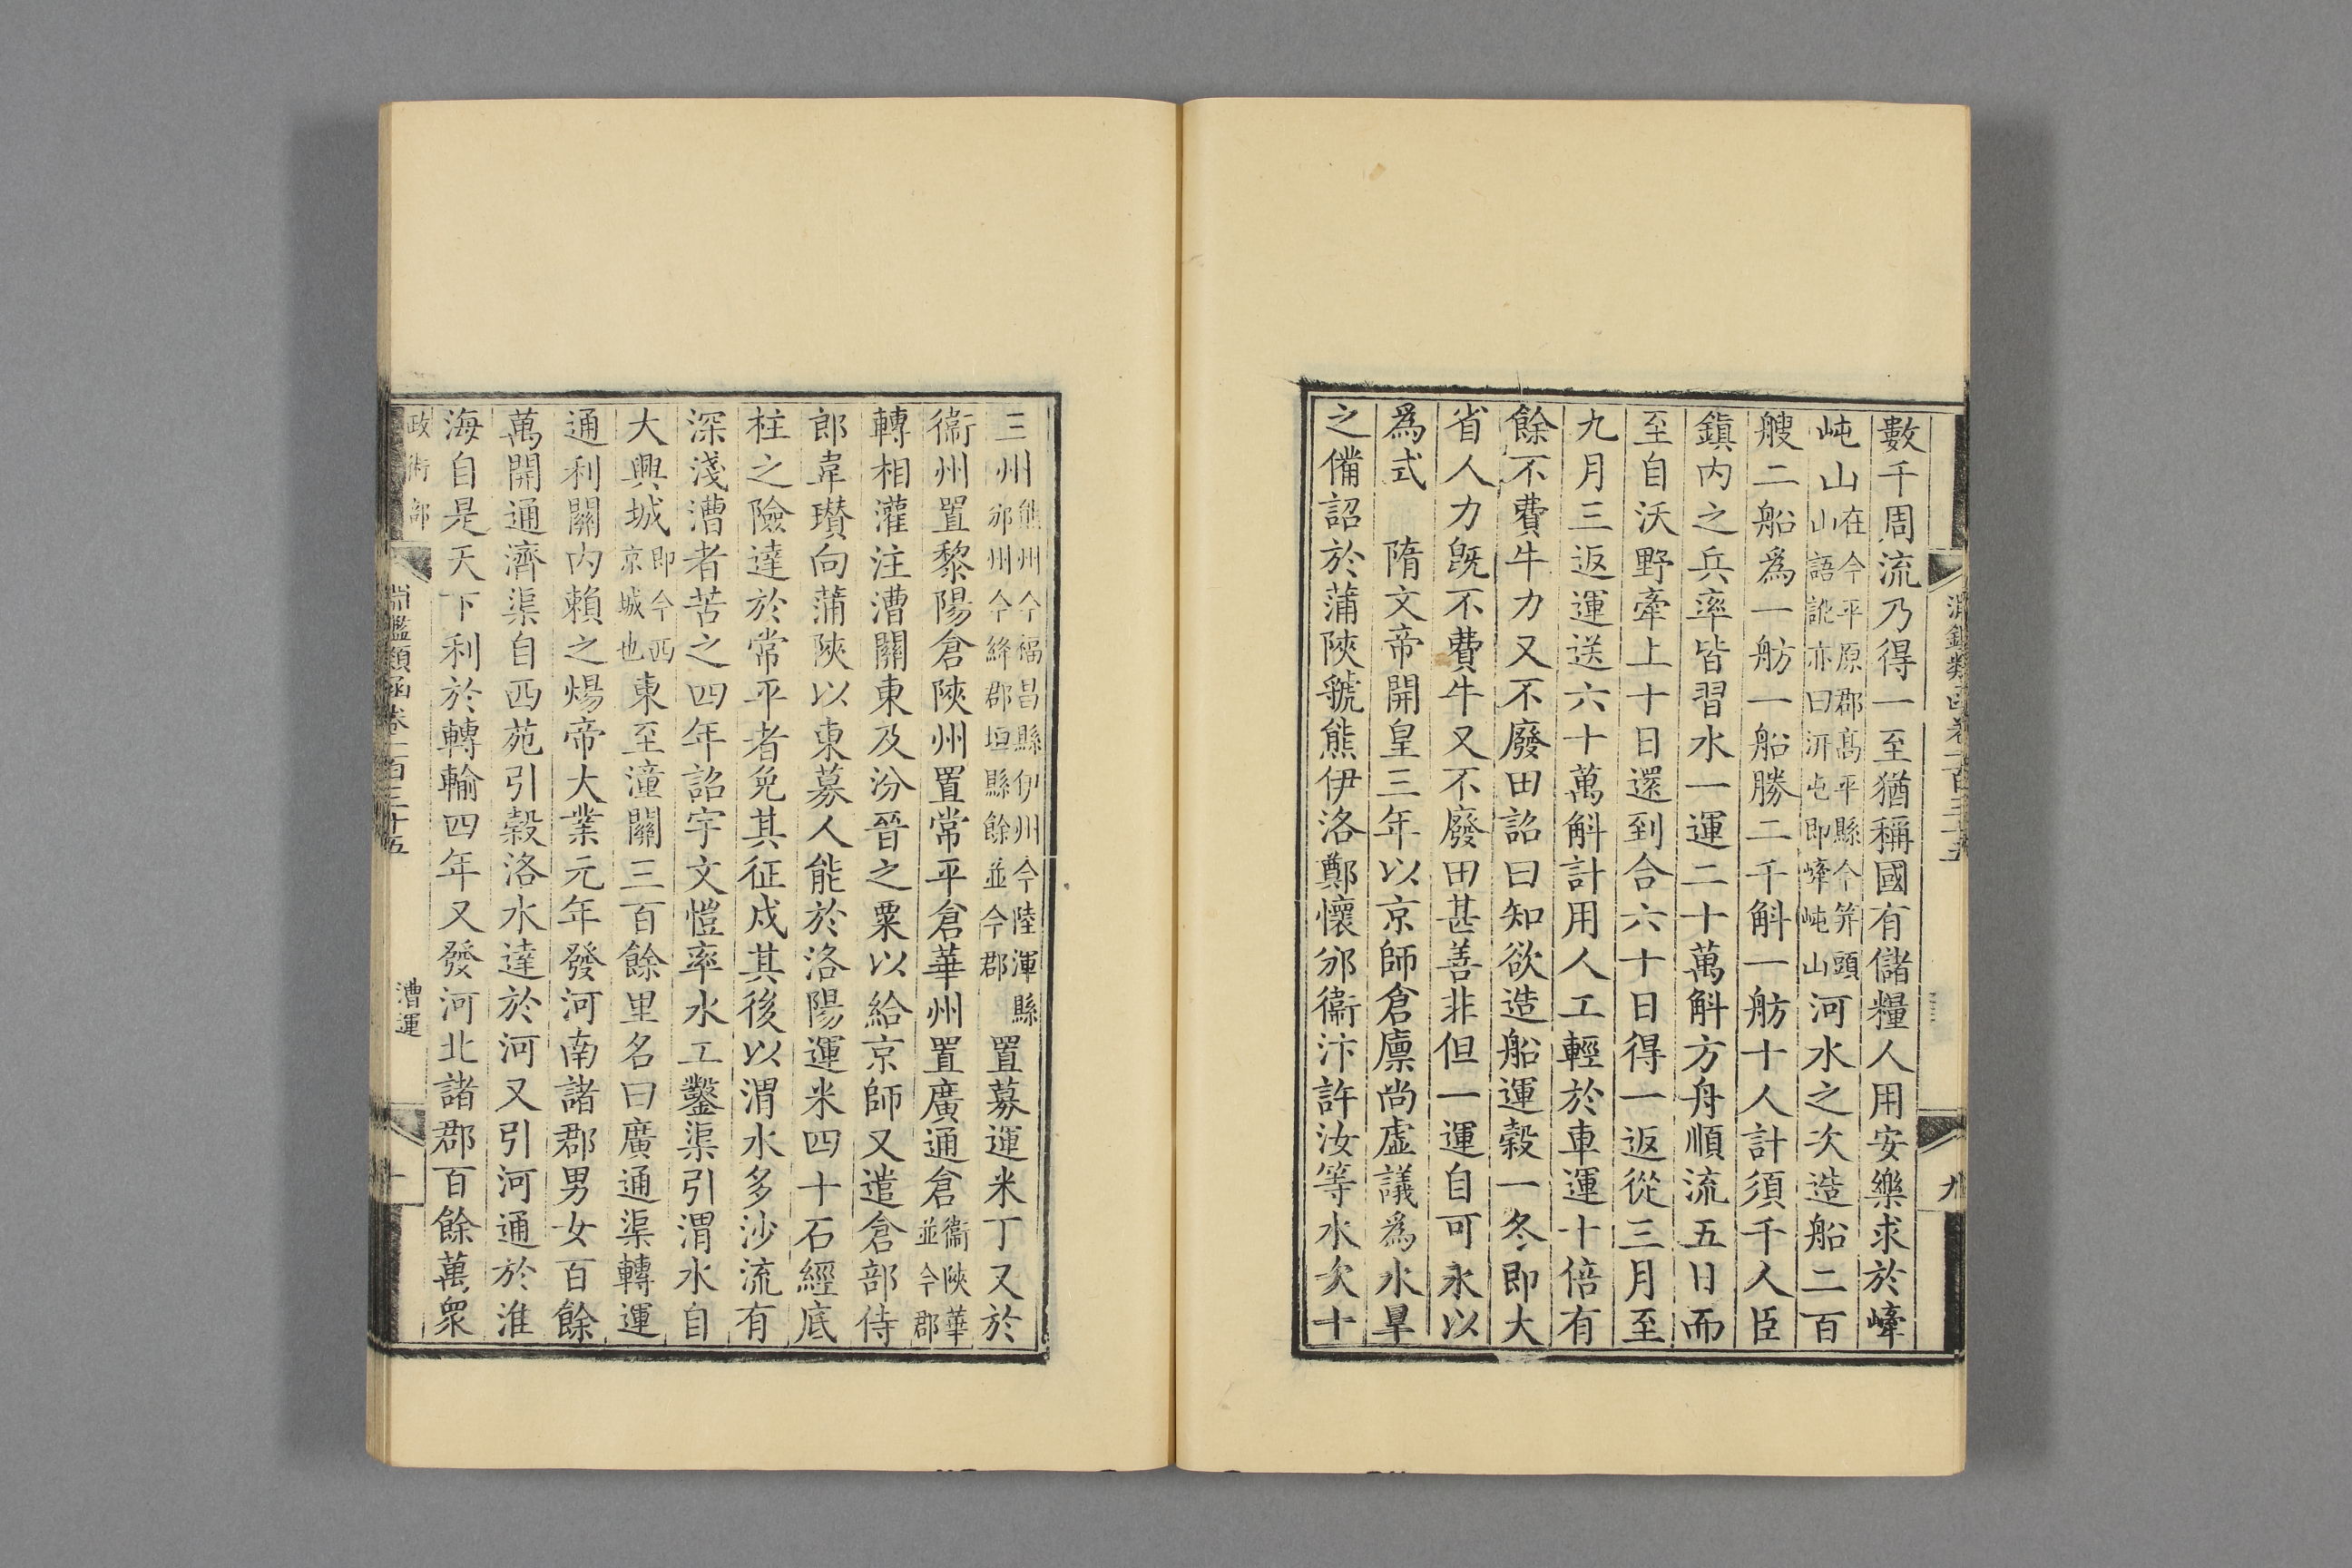 數千周流乃得一至猶稱國有儲糧人用安樂求於𡸴
屯山在今平原郡髙平縣今笄頭山語訛亦曰汧屯即𡸴屯山河水之次造船二百
艘二船爲一舫一船勝二千斛一舫十人計須千人臣
鎭内之兵率皆習水一運二十萬斛方舟順流五日而
至自沃野牽上十日還到合六十日得一返從三月至
九月三返運送六十萬斛計用人工輕於車運十倍有
餘不費牛力又不廢田詔曰知欲造船運穀一冬即大
省人力旣不費牛又不廢田甚善非但一運自可永以
爲式　隋文帝開皇三年以京師倉廪尚虛議爲水旱
之備詔於蒲陜虢熊伊洛鄭懷邠衞汴許汝等水次十
三州熊州今福昌縣伊州今陸渾縣邠州今絳郡垣縣餘並今郡置募運米丁又於
衞州置黎陽倉陜州置常平倉華州置廣通倉衞陜華並今郡
轉相灌注漕關東及汾晉之粟以給京師又遣倉部侍
郎韋瓚向蒲陜以東募人能於洛陽運米四十石經底
柱之險達於常平者免其征戍其後以渭水多沙流有
深淺漕者苦之四年詔宇文愷率水工鑿渠引渭水自
大興城即今西京城也東至潼關三百餘里名曰廣通渠轉運
通利關内賴之煬帝大業元年發河南諸郡男女百餘
萬開通濟渠自西苑引榖洛水達於河又引河通於淮
海自是天下利於轉輸四年又發河北諸郡百餘萬衆
政術部
淵鑑類函卷一百三十五
漕運
十
淵鑑類函卷一百三十五
九